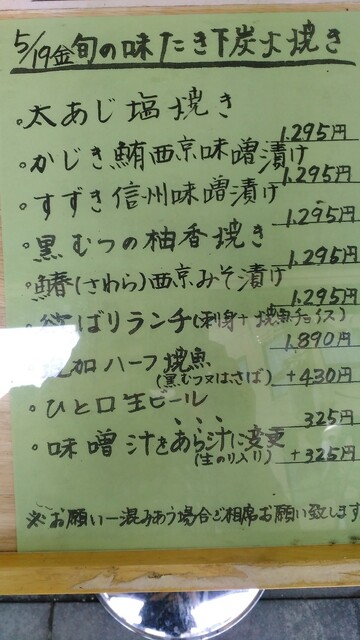 5/19金旬の味たき下炭火焼き
。太あじ塩焼き
1.295円
。かじき鮪西京味噌漬け
1.295円
。すずき信州味噌漬け
1.295円
。黒むつの柚香焼き
1.295円
。鰆(さわら)西京みそ漬け
1.295円
。欲ばりランチ(刺身+焼魚チョイス)
1.890円
加ハーフ焼魚
(黒むつ又はさば)
+430円
。ひと口生ビール
325円
。味噌汁をあら汁に変更
(生のり入り)
+325円
※お願いー混みあう場合ご相席お願い致します